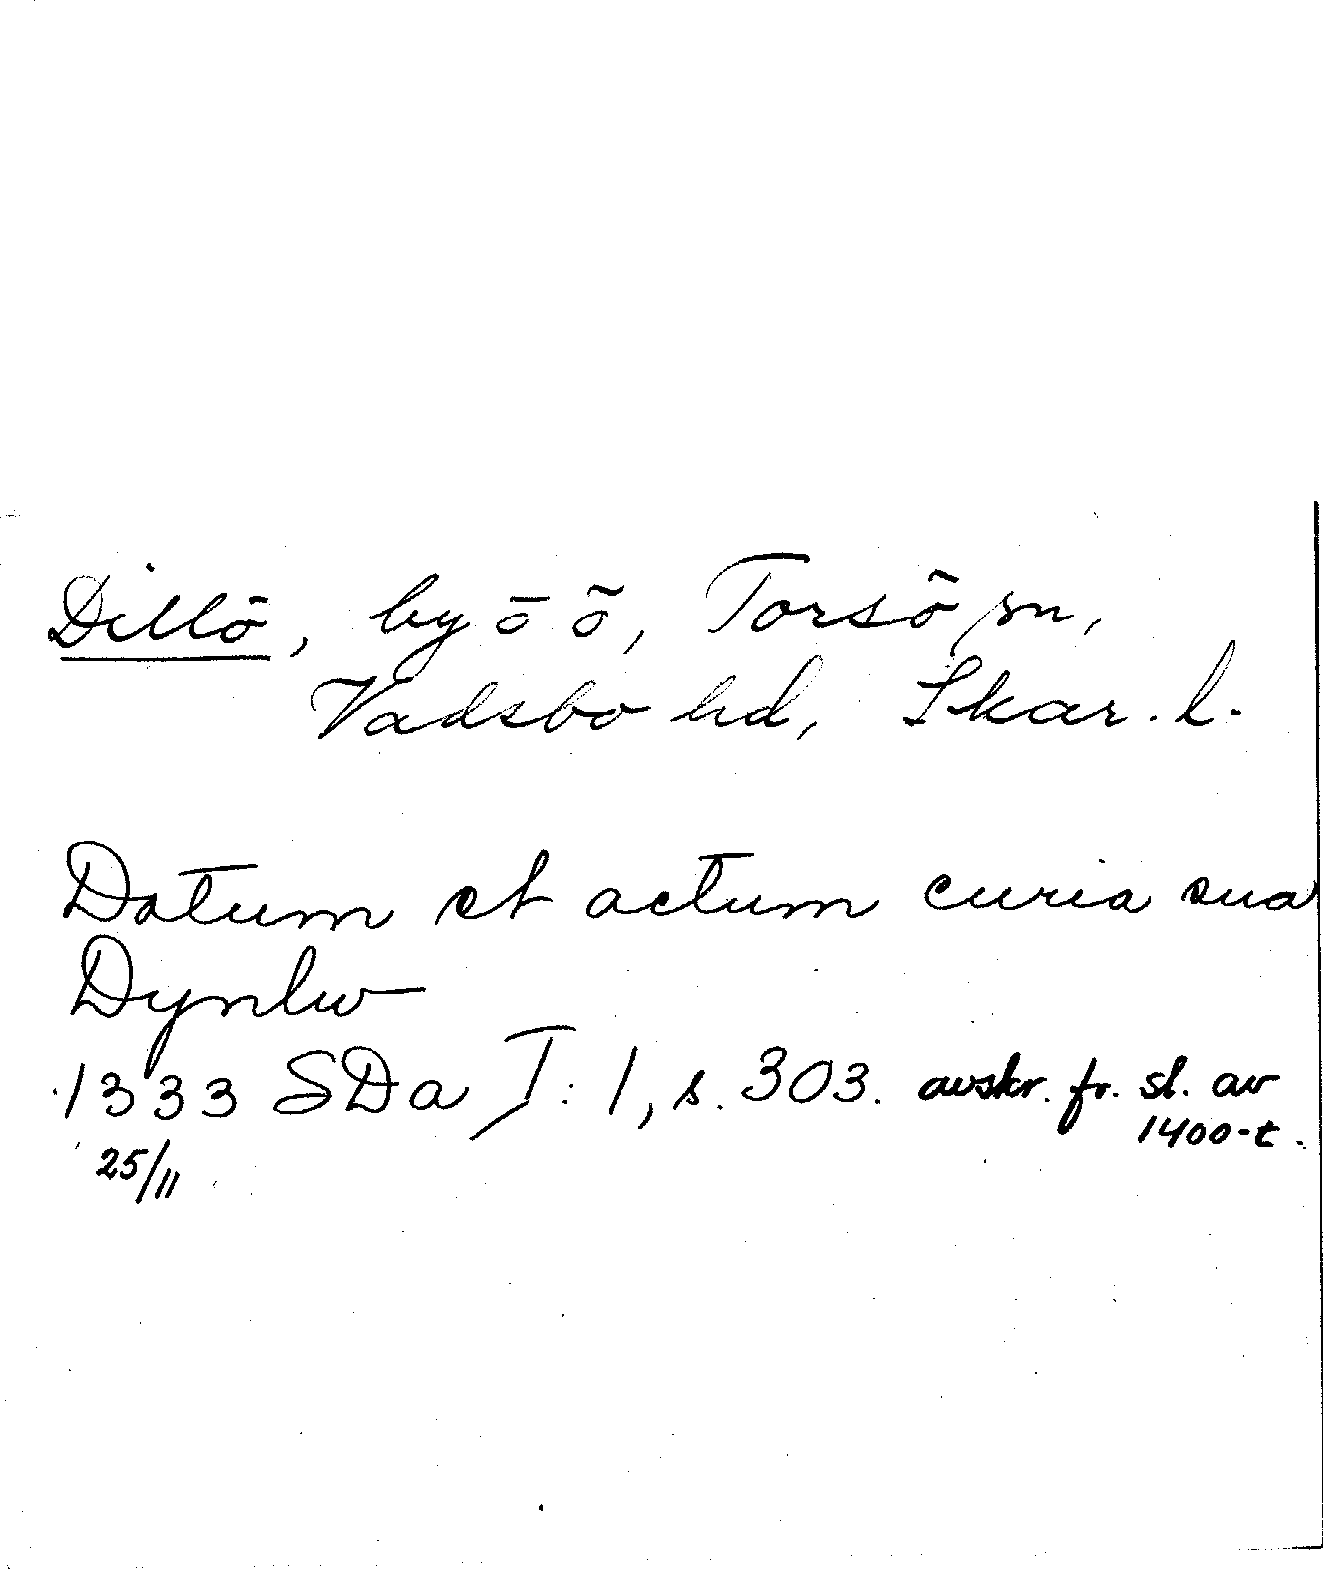 Dillö, by ö ö, Torsö sn,
Vadsbo hd, Skar. l.
Datum et actum curia sua
Dynlw
1333 SDa I: 1, s. 303. avskr. fr. sl. av
1400-t.
25/11